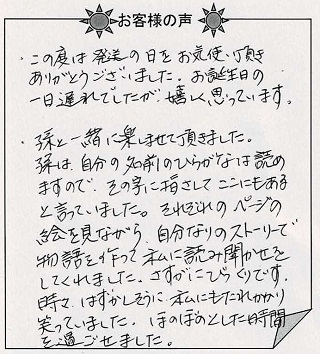 お客様の声
・この度は発送の日をお気使い頂き
ありがとうございました。お誕生日の
一日遅れでしたが、嬉しく思っています。
・孫と一緒に楽しませて頂きました。
孫は、自分の名前のひらがなは読め
ますので、その字に指さしてここにもある
と言っていました。それぞれのページの
絵を見ながら、自分なりのストーリーで
物語を作って私に読み聞かせを
してくれました。さすがにびっくりです。
時々、はずかしそうに私にもたれかかり
笑っていました。ほのぼのとした時間
を過ごせました。